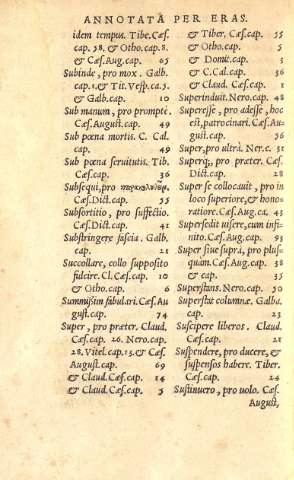 ANNOTATA PER ERAS.
idem tempus. Tibe. Cæs.
cap. 38. & Otho. cap. 8.
& Cæs. Aug. cap. 65
Subinde, pro mox. Galb.
cap. 1. & Tit. Vesp. ca. 5
& Galb. cap. 10
Sub manum, pro promptè.
Cæs. August. cap. 49
Sub pœna mortis. C. Cal.
cap. 49
Sub pœna seruitutis. Tib.
Cæs. cap. 36
Subsequi, pro
Cæs. Dict. cap. 55
Subsortitio, pro suffectio.
Cæs. Dict. cap. 41
Substringere fascia. Galb.
cap. 21
Succollare, collo supposito
fulcire. Cl. Cæs. cap. 10
& Otho. cap. 6
Summissim fabulari. Cæs. Au
gust. cap. 74
Super, pro præter. Claud.
Cæs. cap. 26. Nero. cap.
28. Vitel. cap. 13. & Cæs.
August. cap. 69
& Claud. Cæs. cap. 14
& Claud. Cæs. cap. 5
& Tiber. Cæs. cap. 55
& Otho. cap. 5
& Domit. cap. 3
& C. Cal. cap. 36
& Claud. Cæs. cap. 2
Superinduit. Nero. cap. 48
Superesse, pro adesse, hoc
est, patrocinari. Cæs. Au-
gust. cap. 56
Super, pro ultrà. Ner. c. 31
Superq;, pro præter. Cæs.
Dict. cap. 28
Super se collocauit, pro in
loco superiore, & hono-
ratiore. Cæs. Aug. ca. 43
Supersedit uisere, cum infi-
nito. Cæs. Aug. cap. 93
Super siue suprà, pro plus-
quàm. Cæs. Aug. cap. 38
& cap. 35
Superstans. Nero. cap. 50
Superstitæ columnæ. Galba.
cap. 23
Suscipere liberos. Claud.
Cæs. cap. 28
Suspendere, pro ducere, &
suspensos habere. Tiber.
Cæs. cap. 24
Sustinuero, pro uolo. Cæs.
August,